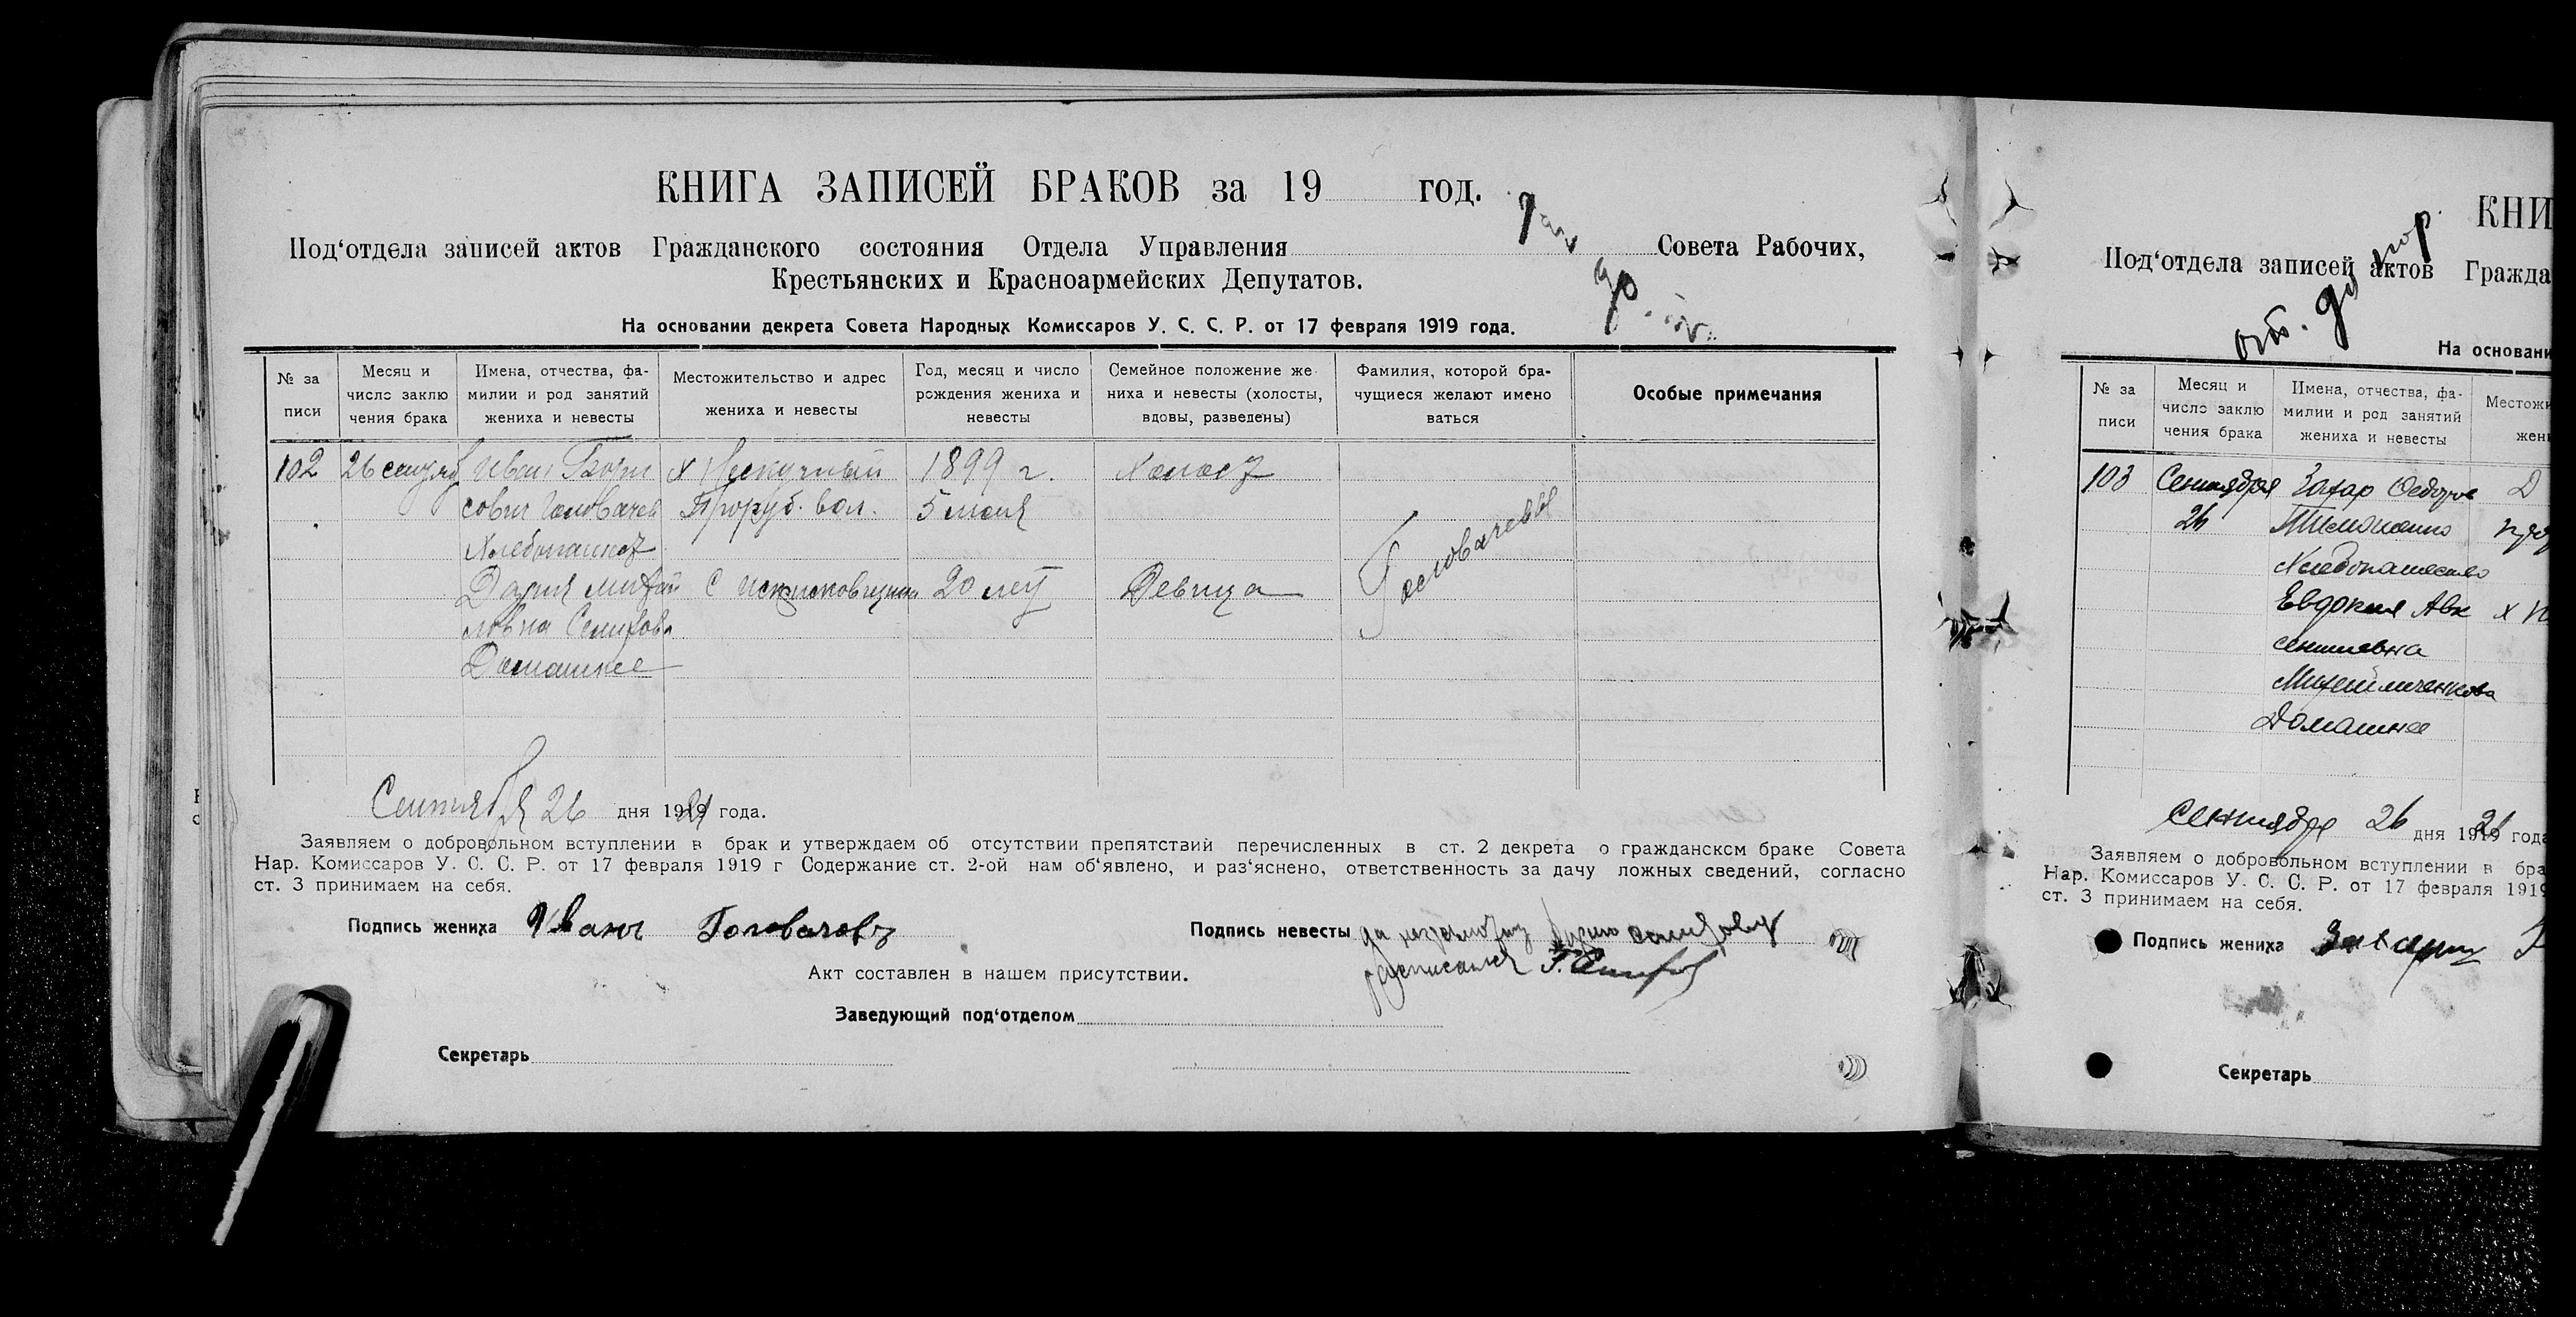 КНИГА ЗАПИСЕЙ БРАКОВ за 19 год.
Под‘отдела записей актов Гражданского состояния Отдела Управления Совета Рабочих,
Крестьянских и Красноармейских Депутатов.
На основании декрета Совета Народных Комиссаров У. С. С. Р. от 17 февраля 1919 года.
№ за писи
Месяц и число заклю чения брака
Имена, отчества, фа- милии и род занятий жениха и невесты
Местожительство и адрес жениха и невесты
Год, месяц и число рождения жениха и невесты
Семейное положение же ниха и невесты (холосты, вдовы, разведены)
Фамилия, которой бра- чущиеся желают имено ваться
Особые примечания
102 26 Иван х Нескучный 1899 г. Холост
сович Головачев Проруб. вол. 5 июня
Хлебопашест
Дария 20 лет Девица Головачевы
Домашнее
Сентября 26 дня 1921 года.
Заявляем о добровольном вступлении в брак и утверждаем об отсутствии препятствий перечисленных в ст. 2 декрета о гражданском браке Совета
Нар. Комиссаров У. С. С. Р. от 17 февраля 1919 г Содержание ст. 2-ой нам об‘явлено, и раз‘яснено, ответственность за дачу ложных сведений, согласно
ст. 3 принимаем на себя.
Подпись жениха Иванъ Головачовъ
Подпись невесты за неграмотну
росписался
Акт составлен в нашем присутствии.
Заведующий под‘отделом
Секретарь
КНИ
Под‘отдела записей актов Гражда
На основани
№ за писи
Месяц и число заклю чения брака
Имена, отчества, фа- милии и род занятий жениха и невесты
Местожи жени
103 Сентября Захар Федоров Д
26 Тимошенко
Хлебопашество
Евдокия Авк х
сентиевна
Михайличенкова
Домашнее
Сентября 26 дня 1921 года
Заявляем о добровольном вступлении в бра
Нар. Комиссаров У. С. С. Р. от 17 февраля 1919
ст. 3 принимаем на себя.
Подпись жениха
Секретарь